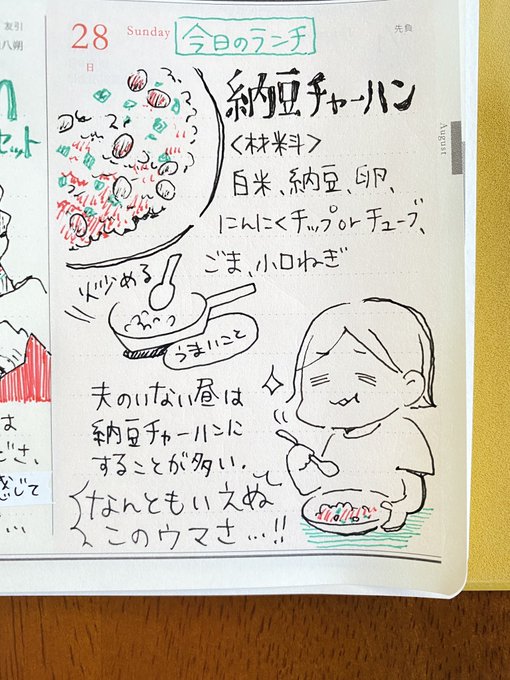 友引
八朔
セット
は
ごさ、
感じて
28
日
Sunday
今日のランチ
先負
August
納豆チャーハン
<材料>
白米、納豆、卵、
にんにくチップorチューブ、
ごま、小口ねぎ
炒める
うまいこと
夫のいない昼は
納豆チャーハンに
することが多い.
なんともいえぬて
このウマさ…!!